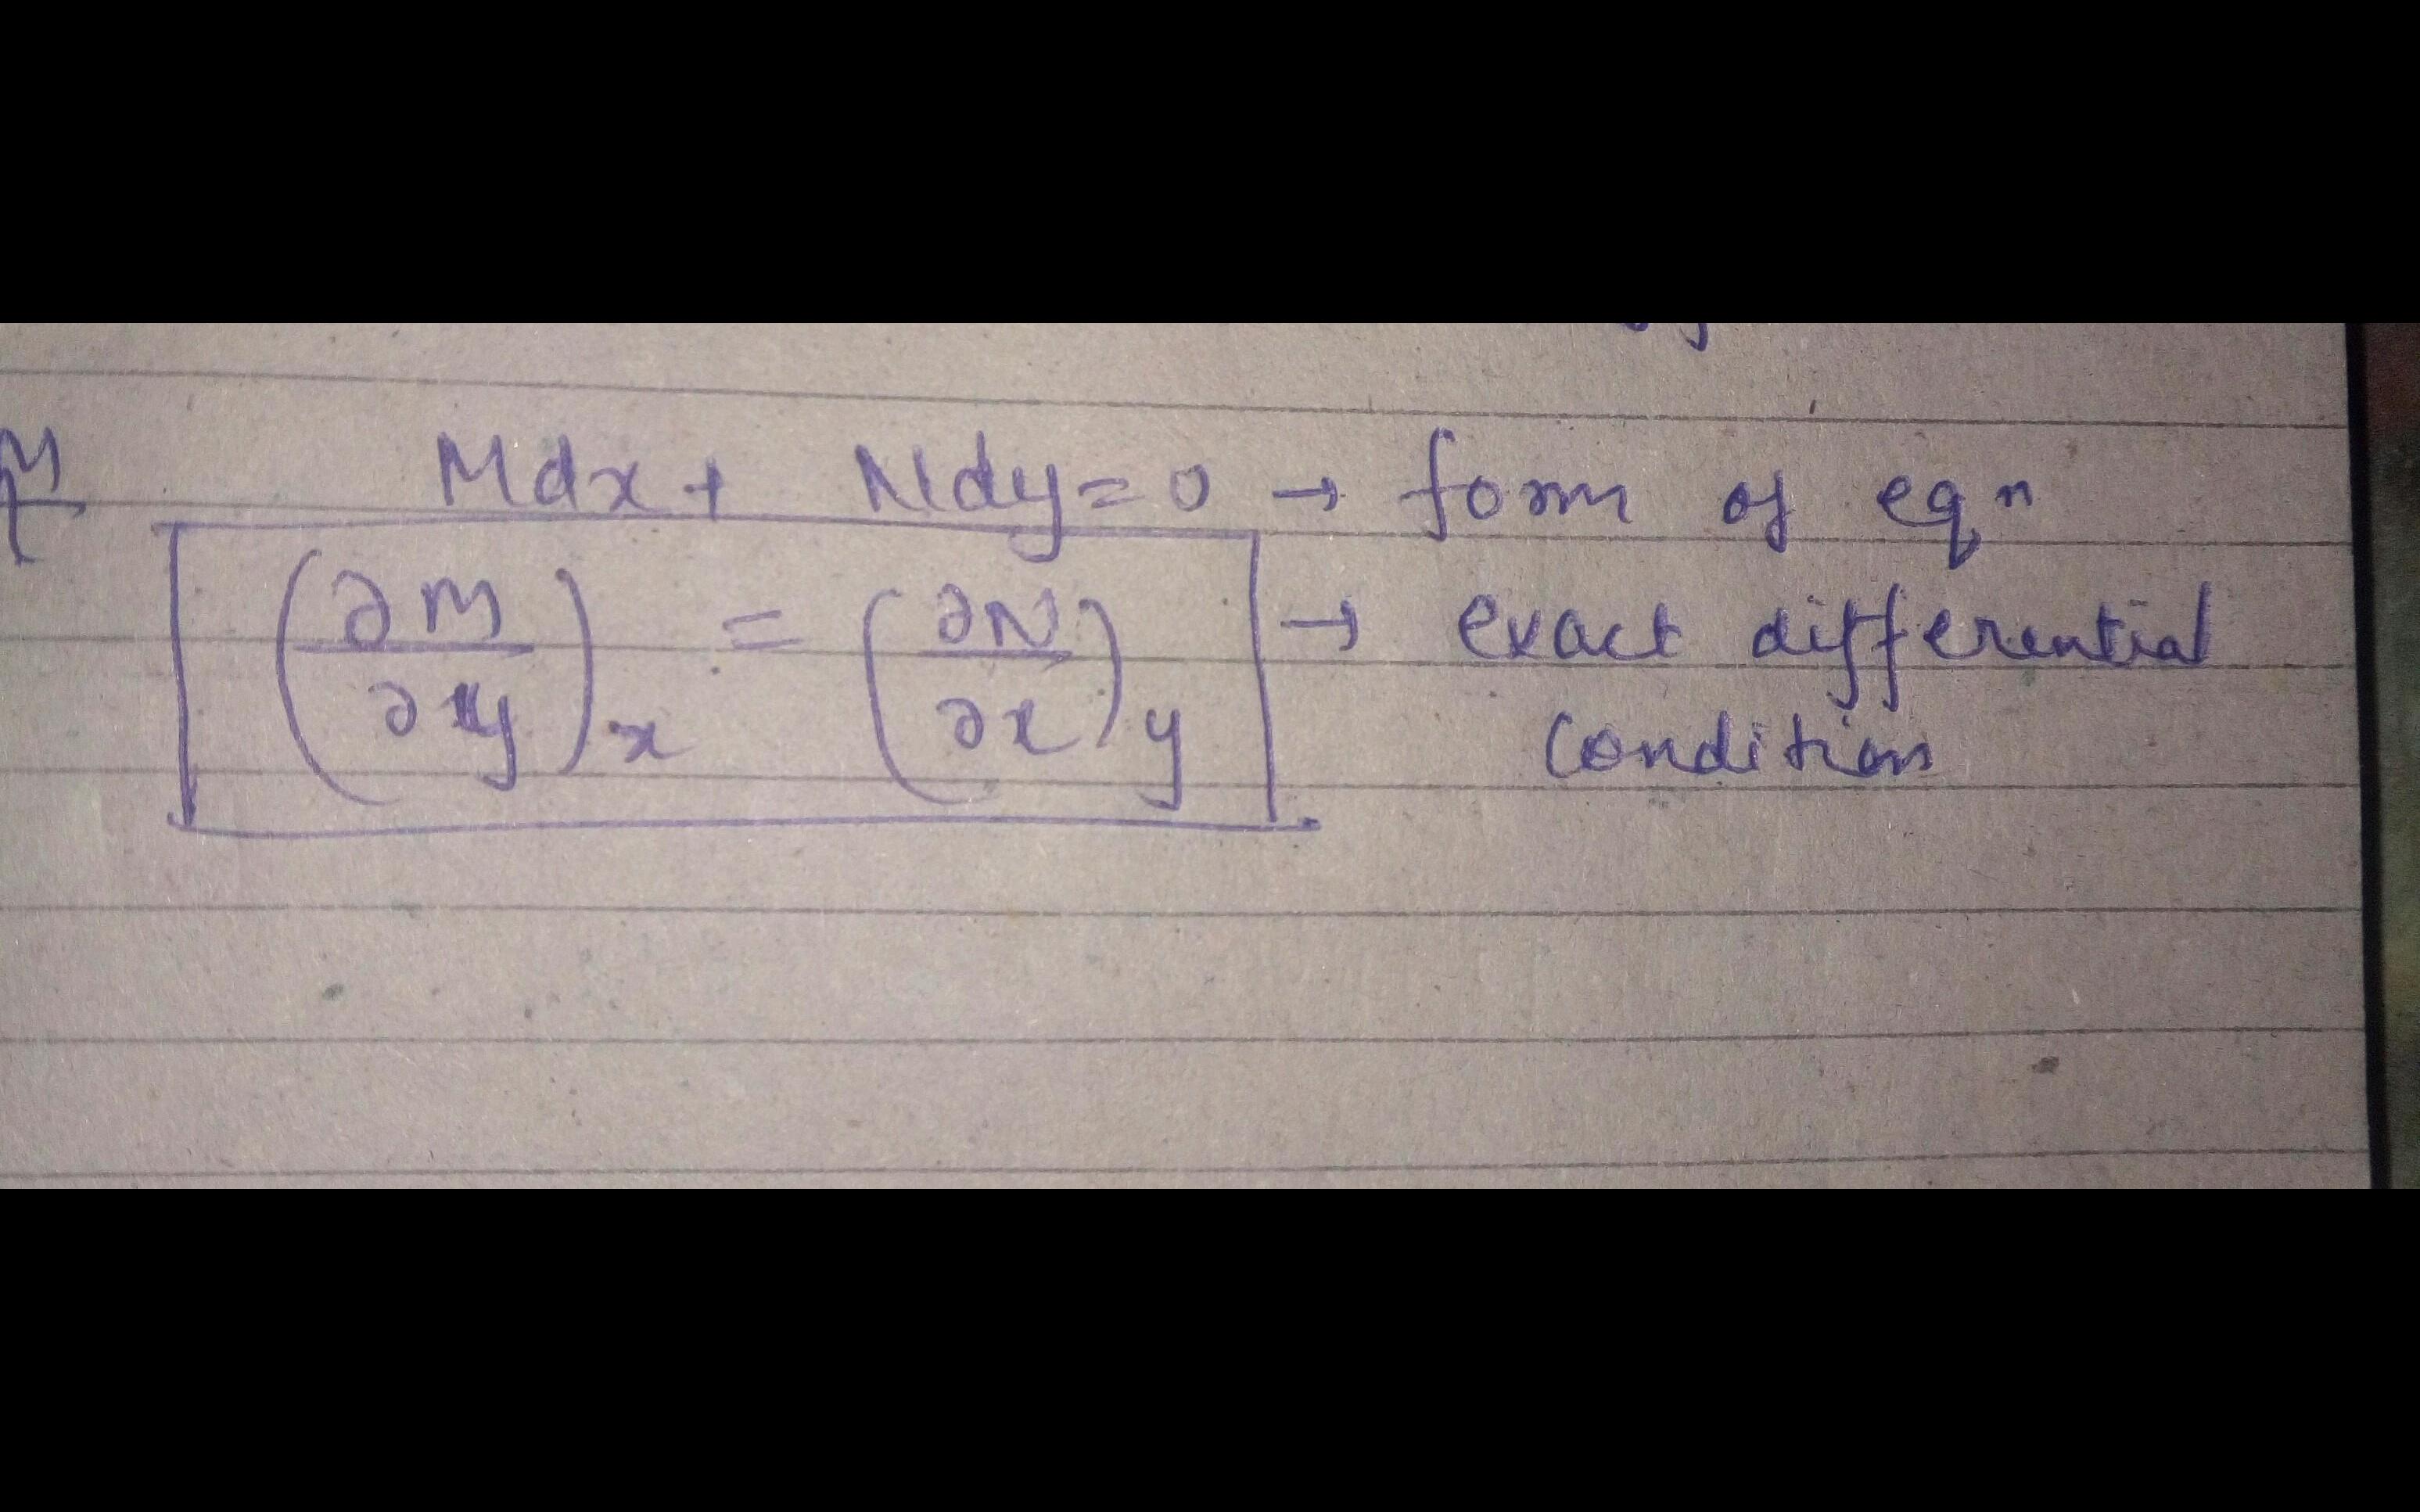 M dx + N dy = 0 → form of eqⁿ
(∂M/∂y)ₓ = (∂N/∂x)y → exact differential
condition